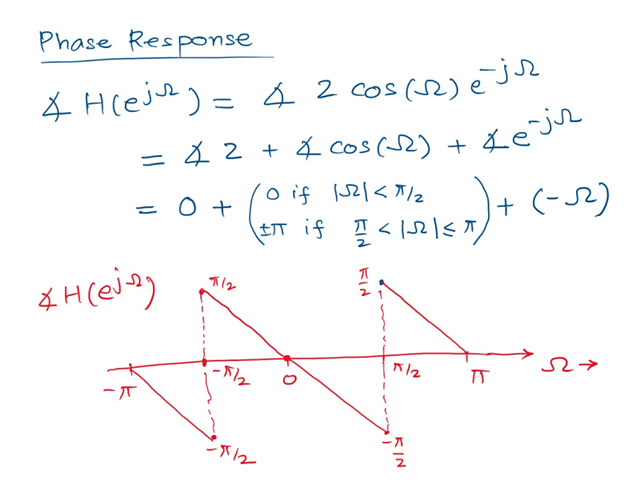 Phase Response
∡ H(e^{jΩ}) = ∡ 2 cos(Ω) e^{-jΩ}
= ∡ 2 + ∡ cos(Ω) + ∡ e^{-jΩ}
= 0 + ( 0 if |Ω| < π/2
±π if π/2 < |Ω| ≤ π ) + (-Ω)
∡ H(e^{jΩ})
π/2
π/2
-π
-π/2
0
π/2
π
Ω →
-π/2
-π/2